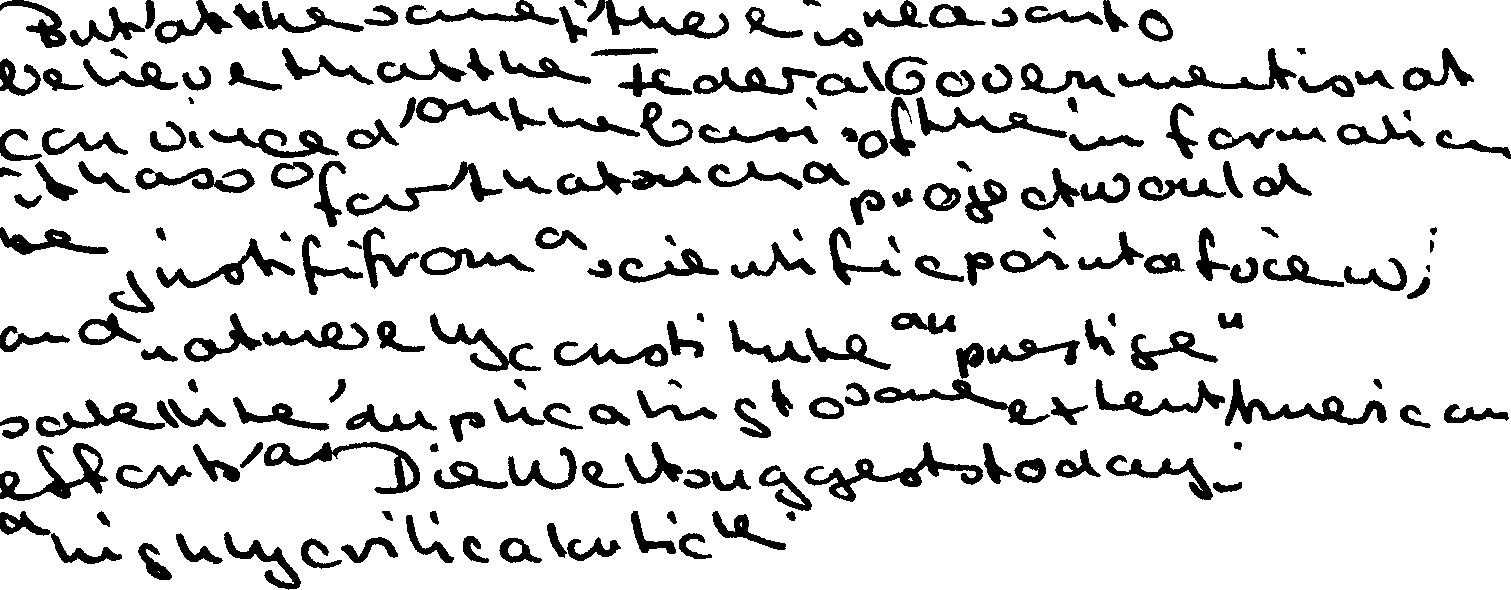 But at the same t' there is reason to
believe that the Federal Government is not
convinced, on the basis of the information
it has so far, that such a project would
be justifi from a scientific point of view,
and not merely constitute an "prestige"
satellite, duplicating to some extent American
efforts, as Die Welt suggests today in
a highly critical article.